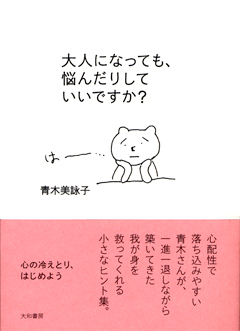 大人になっても、
悩んだりして
いいですか?
はー
青木美詠子
心配性で
落ち込みやすい
青木さんが、
一進一退しながら
築いてきた
我が身を
救ってくれる
小さなヒント集。
心の冷えとり、
はじめよう
大和書房